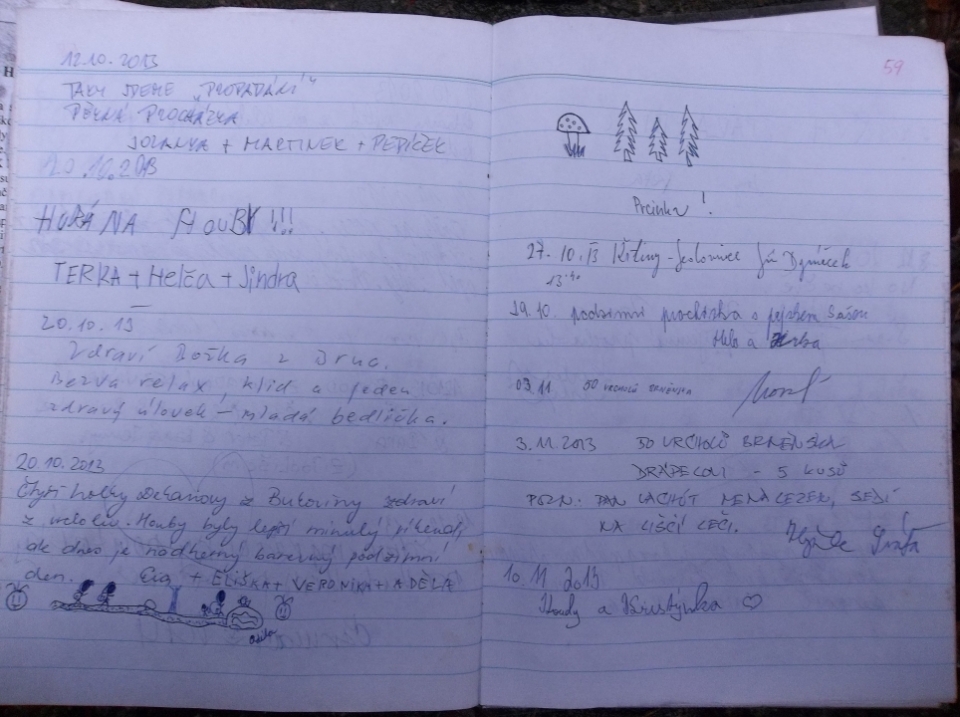 12.10.2013
TAKY JDEME „PROPADÁNÍ“
PĚKNÁ PROCHÁZKA
JOLANKA + MARTINEK + PEPÍČEK
20.10.2013
HURÁ NA HOUBY !!!
TERKA + Helča + Jindra
20.10.13
Zdraví Božka z Brna.
Bezva relax, klid a jeden
zdravý úlovek - mladá bedlička.
20.10.2013
Čtyři holky z Bukoviny zdraví
z výletu. Houby byly lepší minulý víkend,
ale dnes je nádherný barevný podzimní
den. Eva + ELIŠKA + VERONIKA + ADÉLA
59
Prcinka !
27. 10. 13 Křtiny - Jiří
13:40
19.10. podzimní procházka s pejskem
a
03.11 50 VRCHOLŮ
3.11.2013 50 VRCHOLŮ BRNĚNSKA
- 5 KUSŮ
POZN: PAN LACHÓT NENALEZEN, SEDÍ
NA LIŠČÍ LÉČI.
10.11 2013
a Kristýnka ♡